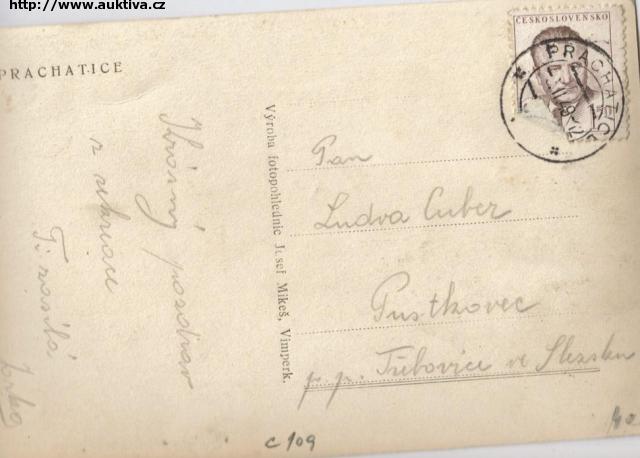 http://www.auktiva.cz
PRACHATICE
ČESKOSLOVENSKO
PRACHATICE
Krásný pozdrav
z rekreace
Ti zasílá
Výroba fotopohlednic Josef Mikeš, Vimperk.
Pan
Ludva Cuber
Pustkovec
p. p. Třebovice ve Slezsku
c 109